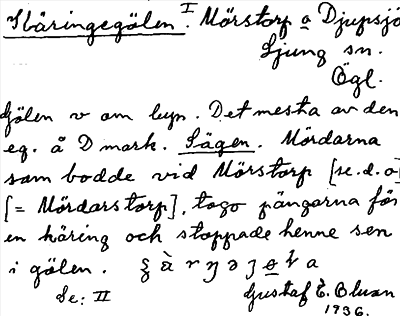 Käringegölen I. Mörstorp o Djupsjö
Ljung sn.
Ögl.
Gölen v om byn. Det mesta av den
eg. å D mark. Sägen. Mördarna
som bodde vid Mörstorp [se. d. o]
[= Mördarstorp], togo pängarna för
en käring och stoppade henne sen
i gölen.
Se: II Gustaf E. Olson
1936.